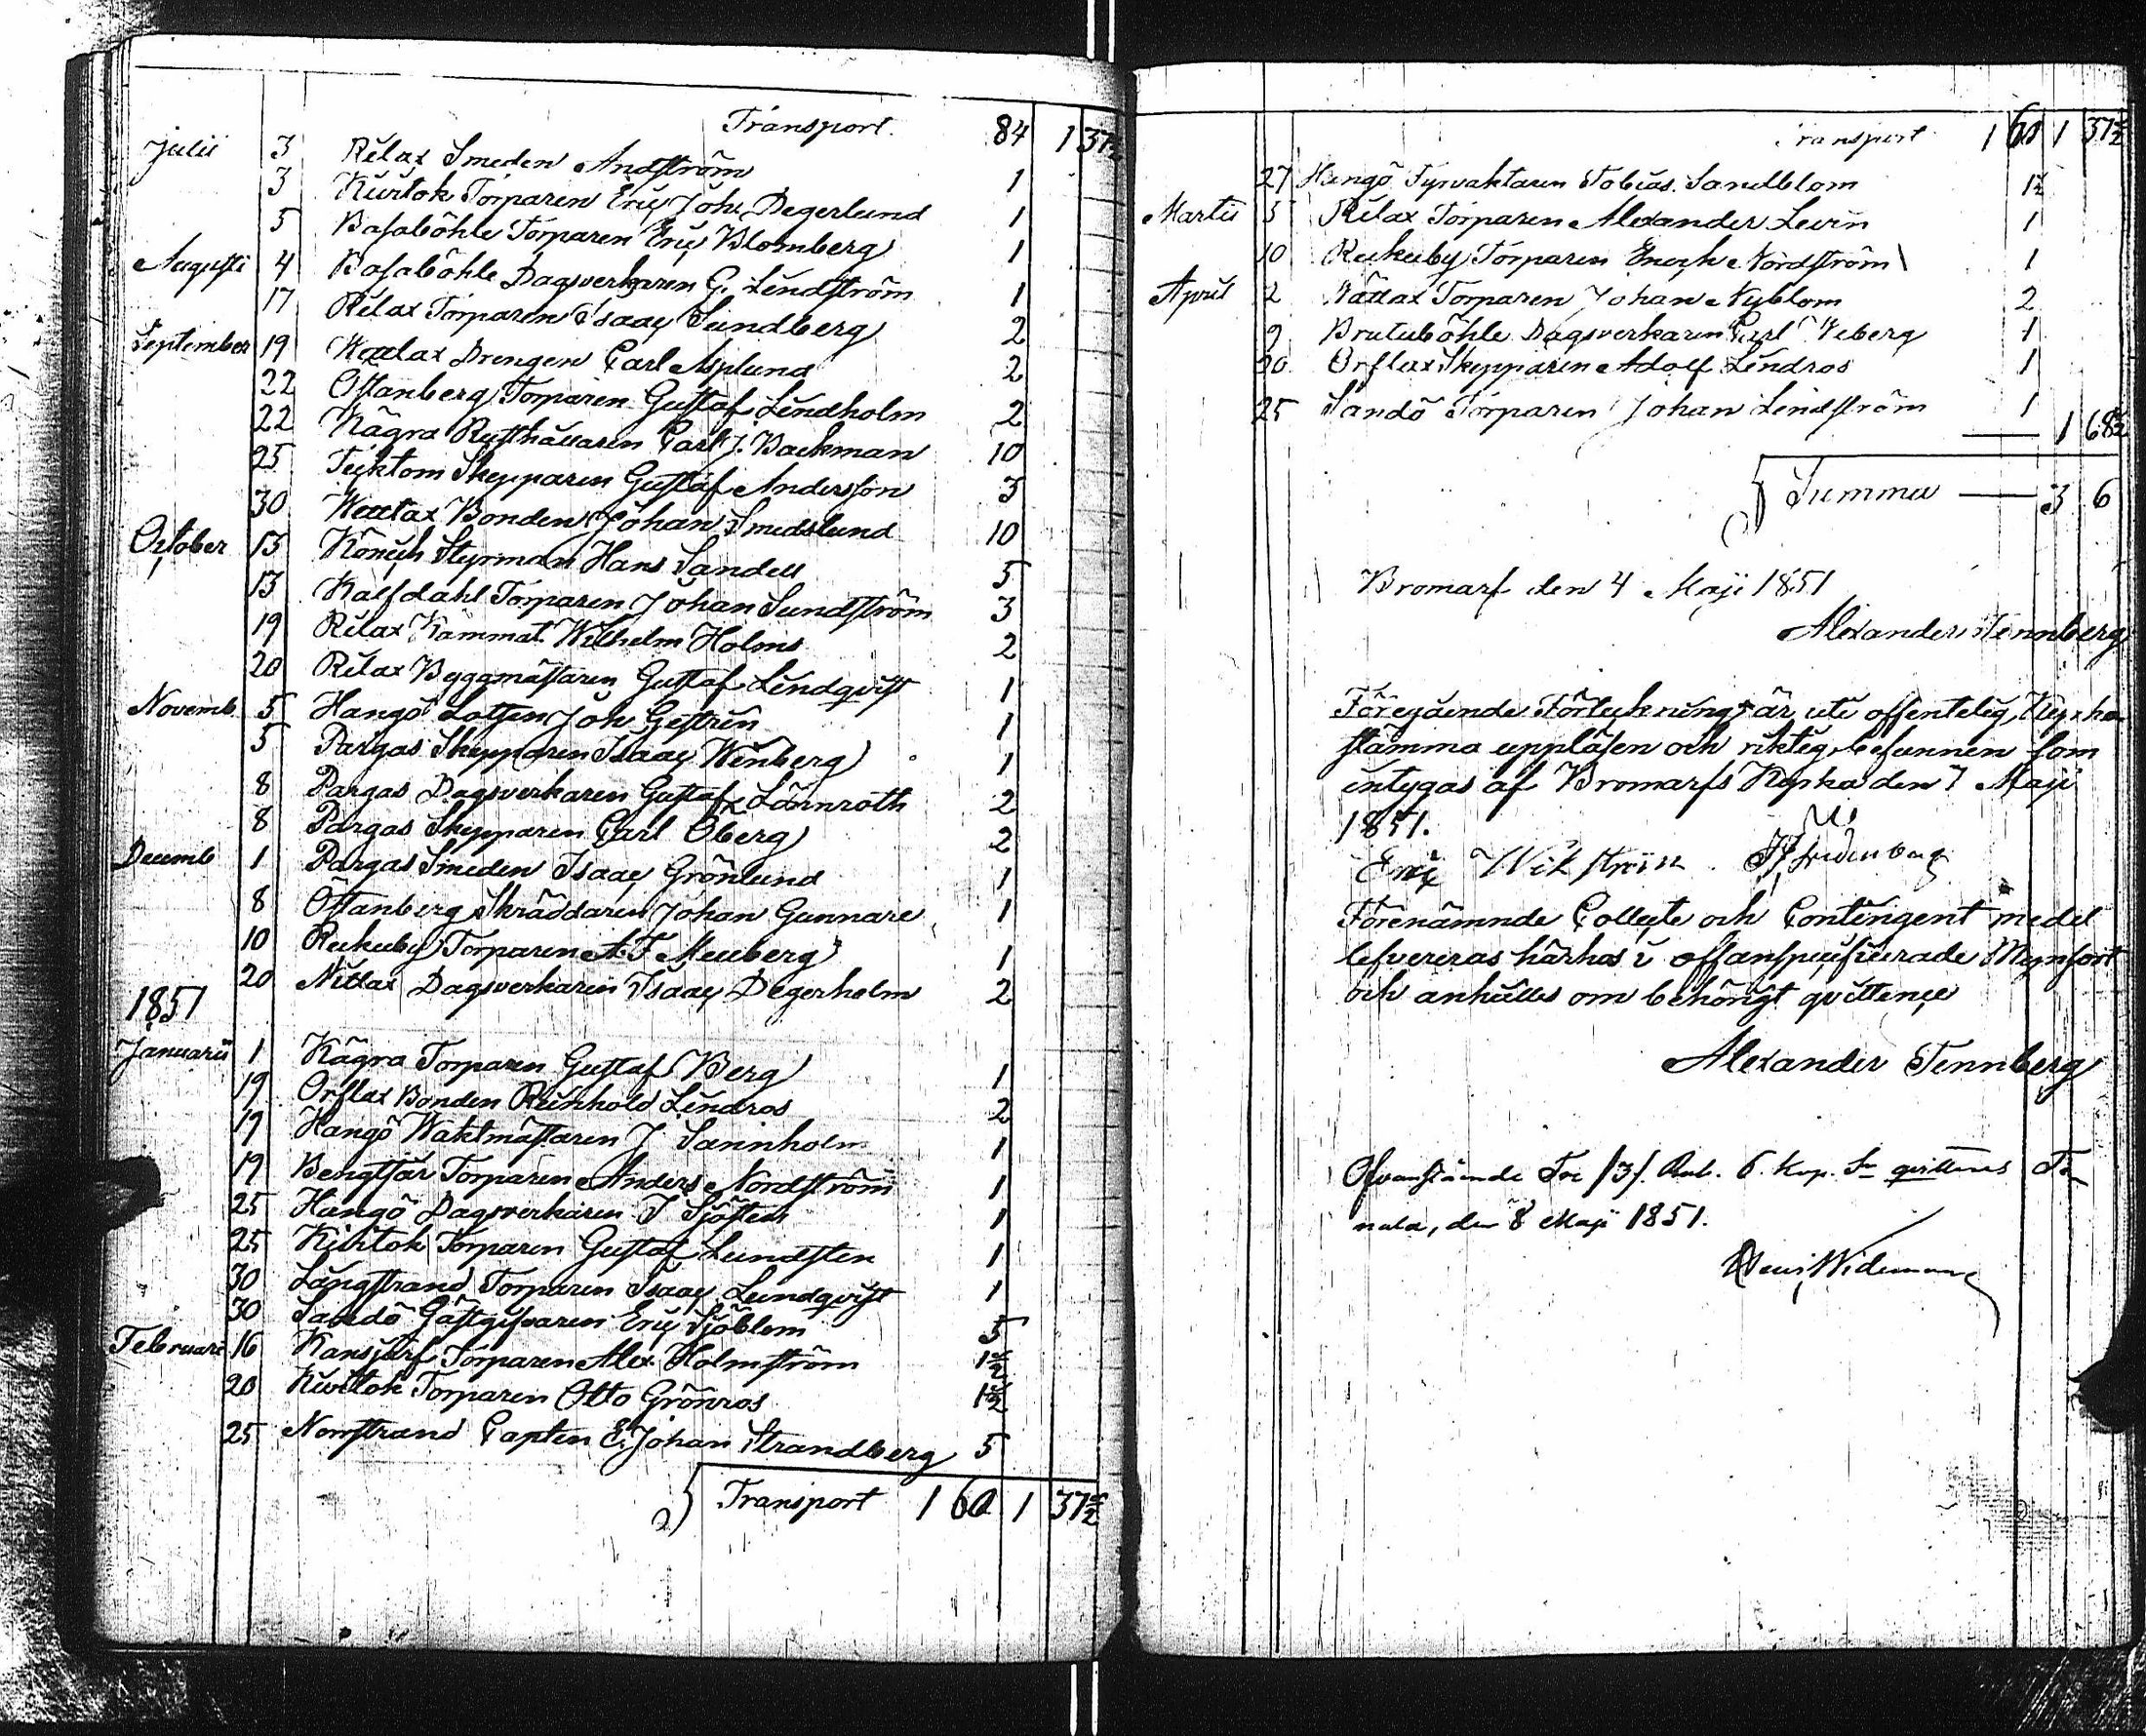 Transport. 84 1 37½
Julii 3 Rilax Smeden Andström 1
3 Kivitok Torparen Eric Joh. Degerlund 1
5 Basaböhle Torparen Eric Blomberg 1
Augusti 4 Basaböhle Dagsverkaren G. Lindström 1
17 Rilax Torparen Isaac Sundberg 2
September 19 Wättlax Drengen Carl Asplund 2
22 Östanberg Torparen Gustaf Lindholm 2
22 Kägra Rusthållaren Carl J. Backman 10
25 Täcktom Skepparen Gustaf Andersson 3
30 Wättlax Bonden Johan Smedslund 10
October 13 Styrman Hans Sandell 5
13 Kalfdahl Torparen Johan Sundström 3
19 Rilax Wilhelm Holms 2
20 Rilax Byggmästaren Gustaf Lindqvist 1
Novemb. 5 Hangö Lotsen Joh Gestrin 1
5 Pargas Skepparen Isaac Winberg 1
8 Pargas Dagsverkaren Gustaf Lönnroth 2
8 Pargas Skepparen Carl Öberg 2
Decemb 1 Pargas Smeden Isaac Grönlund 1
8 Östanberg Skräddaren Johan Gunnare 1
10 Rukuby Torparen A. F. Meuberg 1
20 Nitlax Dagsverkaren Isaac Degerholm 2
1851
Januarii 1 Kägra Torparen Gustaf Berg 1
19 Orslax Bonden Reinhold Lindros 2
19 Hangö Waktmästaren J. Sannholm 1
19 Bengtsår Torparen Anders Nordström 1
25 Hangö Dagsverkaren J Sjösten 1
25 Kivitok Torparen Gustaf Lundsten 1
30 Långstrand Torparen Isaac Lundqvist 1
30 Sandö Gästgifvaren Eric Sjöblom 5
Februari 16 Kansjärf Torparen Alex. Holmström 1½
20 Kivitok Torparen Otto Grönros 1½
25 Norrstrand Capten E. Johan Strandberg 5
Transport 1 60 1 37½
Transport 1 60 1 37½
27 Hangö Fyrvaktaren Tobias Sandblom 1½
Martii 5 Rilax Torparen Alexander Levin 1
10 Rukuby Torparen Enoch Nordström 1
April 2 Wättlax Torparen Johan Nyblom 2
9 Bruteböhle Dagsverkaren Carl Weberg 1
20 Orslax Skepparen Adolf Lindros 1
25 Sandö Torparen Johan Lindström 1
1 68½
Summa 3 6
Bromarf den 4 Maji 1851
Alexander Tennberg
Föregående Förteckning är uti offentelig Kyrko
stämma uppläsen och riktig befunnen som
intygas af Bromarfs Kyrka den 7 Maji
1851.
Eric Wikström
Förenämnde Collecte och Contingent medel
lefvereras härhos i ofvanspecificerade Myntsort
och anhålles om behörigt qvittence
Alexander Tennberg
Ofvanstående Tre /3/. Rub. 6. Kop. Sr qvitteras Te
nala, den 8 Maji 1851.
Wideman